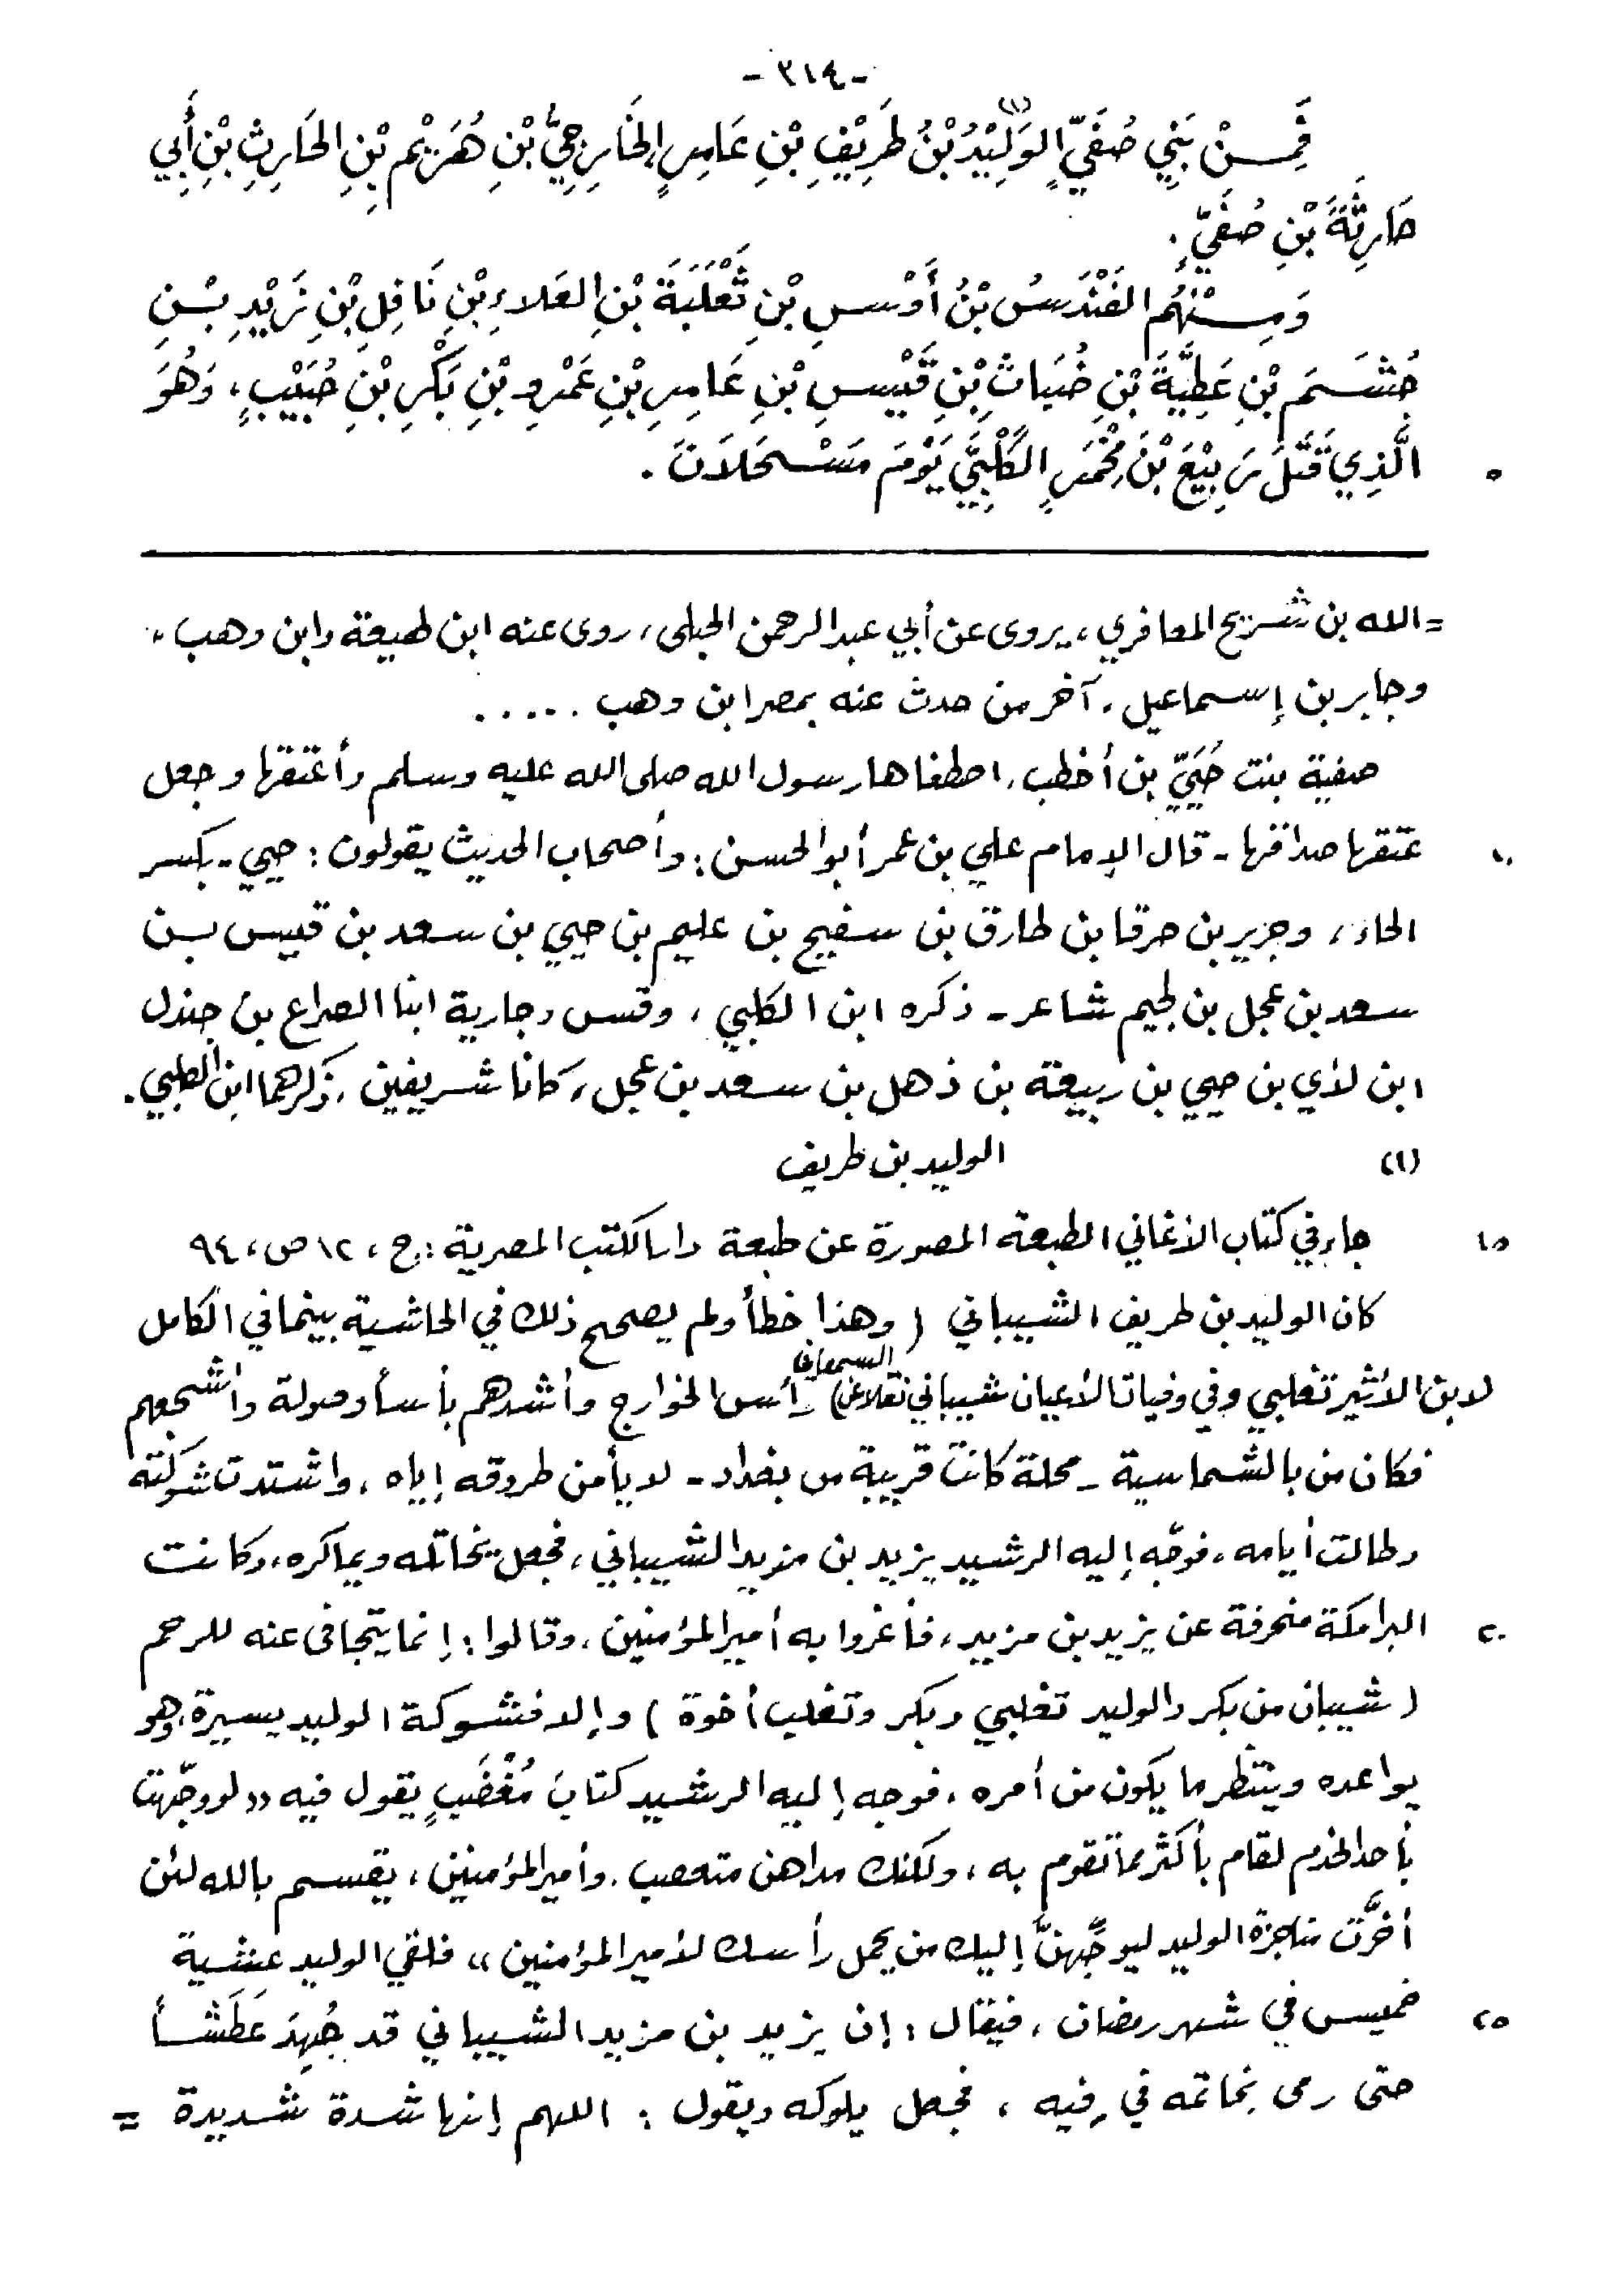 -٣١٤-
فَمِنْ بَنِي صُفَيٍّ الوَلِيْدُ(١) بْنُ طَرِيْفِ بْنِ عَامِرٍ الخَارِجِيُّ بْنِ هُزَيْمِ بْنِ الحَارِثِ بْنِ أَبِي
حَارِثَةَ بْنِ صُفَيٍّ.
وَمِنْهُم الفَنْدَسُ بْنُ أَوْسِ بْنِ ثَعْلَبَةَ بْنِ العَلاءِ بْنِ نَافِلِ بْنِ زَيْدِ بْنِ
جُشَمَ بْنِ عَطِيَّةَ بْنِ ضُبَاثِ بْنِ قَيْسِ بْنِ عَامِرِ بْنِ عَمْرِو بْنِ بَكْرِ بْنِ حُبَيْبٍ، وَهُوَ
الَّذِي قَتَلَ رَبِيْعَ بْنَ مِخْمَرٍ الكَلْبِيَّ يَوْمَ مَسْحَلَانَ. ٥
=الله بن شريح المعافري، يروى عن أبي عبد الرحمن الحبلى، روى عنه ابن لهيعة وابن وهب،
وجابر بن إسماعيل، آخر من حدث عنه بمصر ابن وهب .....
صفية بنت حُيَيّ بن أخطب، اصطفاها رسول الله صلى الله عليه وسلم وأعتقها وجعل
عتقها صداقها - قال الإمام علي بن عمر أبو الحسن: وأصحاب الحديث يقولون: حيي - بكسر ١٠
الحاء، وجرير بن حرقا بن طارق بن سفيح بن عليم بن حيي بن سعد بن قيس بن
سعد بن عجل بن لجيم شاعر - ذكره ابن الكلبي، وقسى وجارية ابنا الصداع بن جندل
ابن لأي بن حيي بن ربيعة بن ذهل بن سعد بن عجل، كانا شريفين، ذكرهما ابن الكلبي.
(١) الوليد بن طريف
جاء في كتاب الأغاني الطبعة المصورة عن طبعة دار الكتب المصرية: ج، ١٢ ص، ٩٤ ١٥
كان الوليد بن طريف الشيباني (وهذا خطأ ولم يصحح ذلك في الحاشية بينما في الكامل
لابن الأثير تغلبي وفي وفيات الأعيان شيباني نقلا عن السمعاني) رأس الخوارج وأشدهم بأساً وصولة وأشجعهم
فكان من بالشماسية - محلة كانت قريبة من بغداد - لا يأمن طروقه إياه، واشتدت شوكته
وطالت أيامه، فوجّه إليه الرشيد يزيد بن مزيد الشيباني، فجعل يخاتله ويماكره، وكانت
البرامكة منحرفة عن يزيد بن مزيد، فأغروا به أمير المؤمنين، وقالوا: إنما يتجافى عنه للرحم ٢٠
(شيبان من بكر والوليد تغلبي وبكر وتغلب أخوة) وإلا فشوكة الوليد يسيرة، وهو
يواعده وينتظر ما يكون من أمره، فوجه إليه الرشيد كتابَ مُغْضَبٍ يقول فيه «لو وجّهت
بأحد الخدم لقام بأكثر مما تقوم به، ولكنك مداهن متعصب. وأمير المؤمنين، يقسم بالله لئن
أخّرت مناجزة الوليد ليوجّهنَّ إليك من يحمل رأسك لأمير المؤمنين» فلقي الوليد عشية
خميس في شهر رمضان، فيقال: إن يزيد بن مزيد الشيباني قد جُهِدَ عَطَشاً ٢٥
حتى رمى بخاتمه في فيه، فجعل يلوكه ويقول: اللهم إنها شدة شديدة =